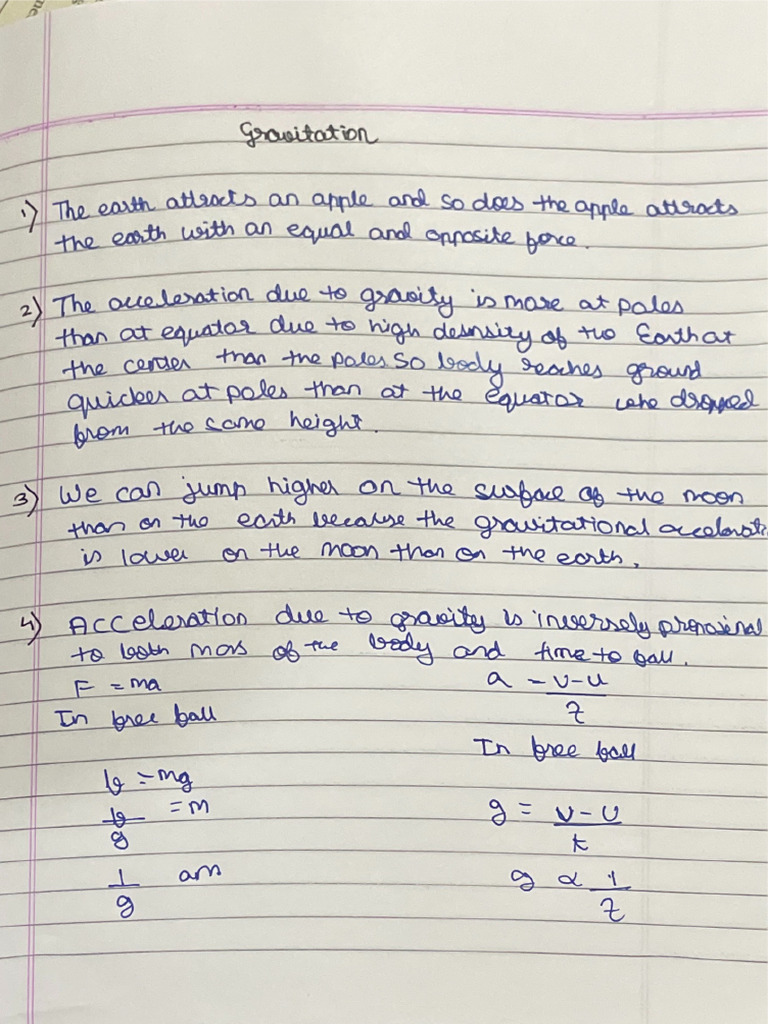 Gravitation
1) The earth attracts an apple and so does the apple attracts
the earth with an equal and opposite force.
2) The acceleration due to gravity is more at poles
than at equator due to high density of the Earth at
the center than the poles so body reaches ground
quicker at poles than at the equator whe dropped
from the same height.
3) We can jump higher on the surface of the moon
than on the earth because the gravitational accelerati
is lower on the moon than on the earth.
4) Acceleration due to gravity is inversely
to both mass of the body and time to fall.
F = ma
a = v-u
t
In free fall
In free fall
f = mg
f = m
g
g = v-u
t
1 αm
g
g α 1
t